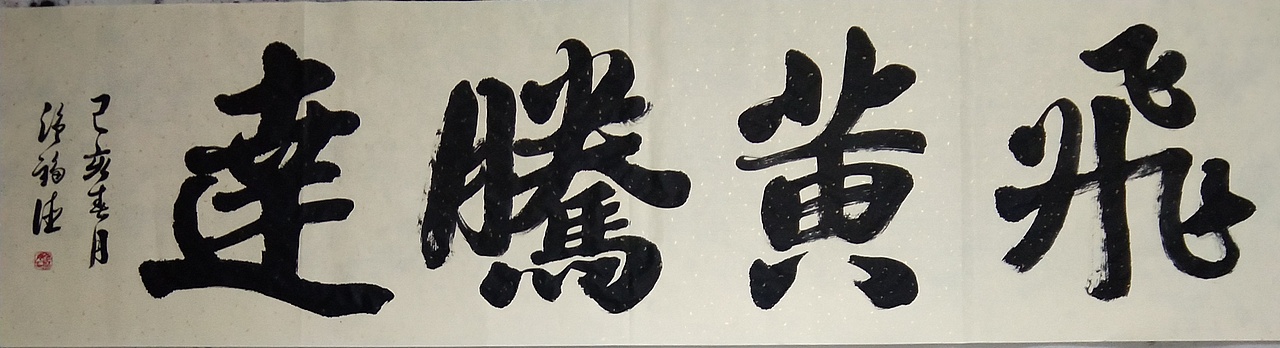 飛黄騰達
己亥春月
福德